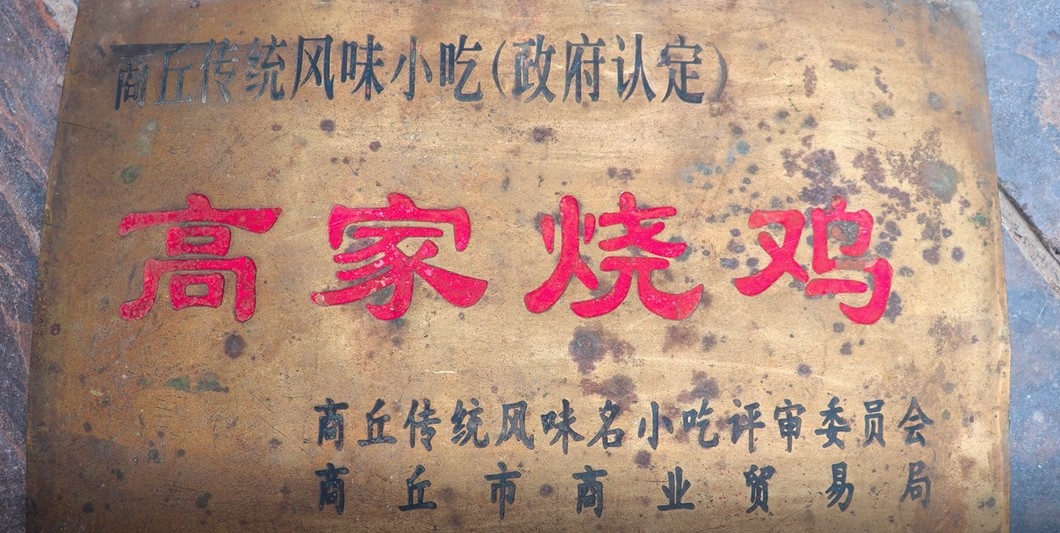 商丘传统风味小吃(政府认定)
高家烧鸡
商丘传统风味名小吃评审委员会
商丘市商业贸易局